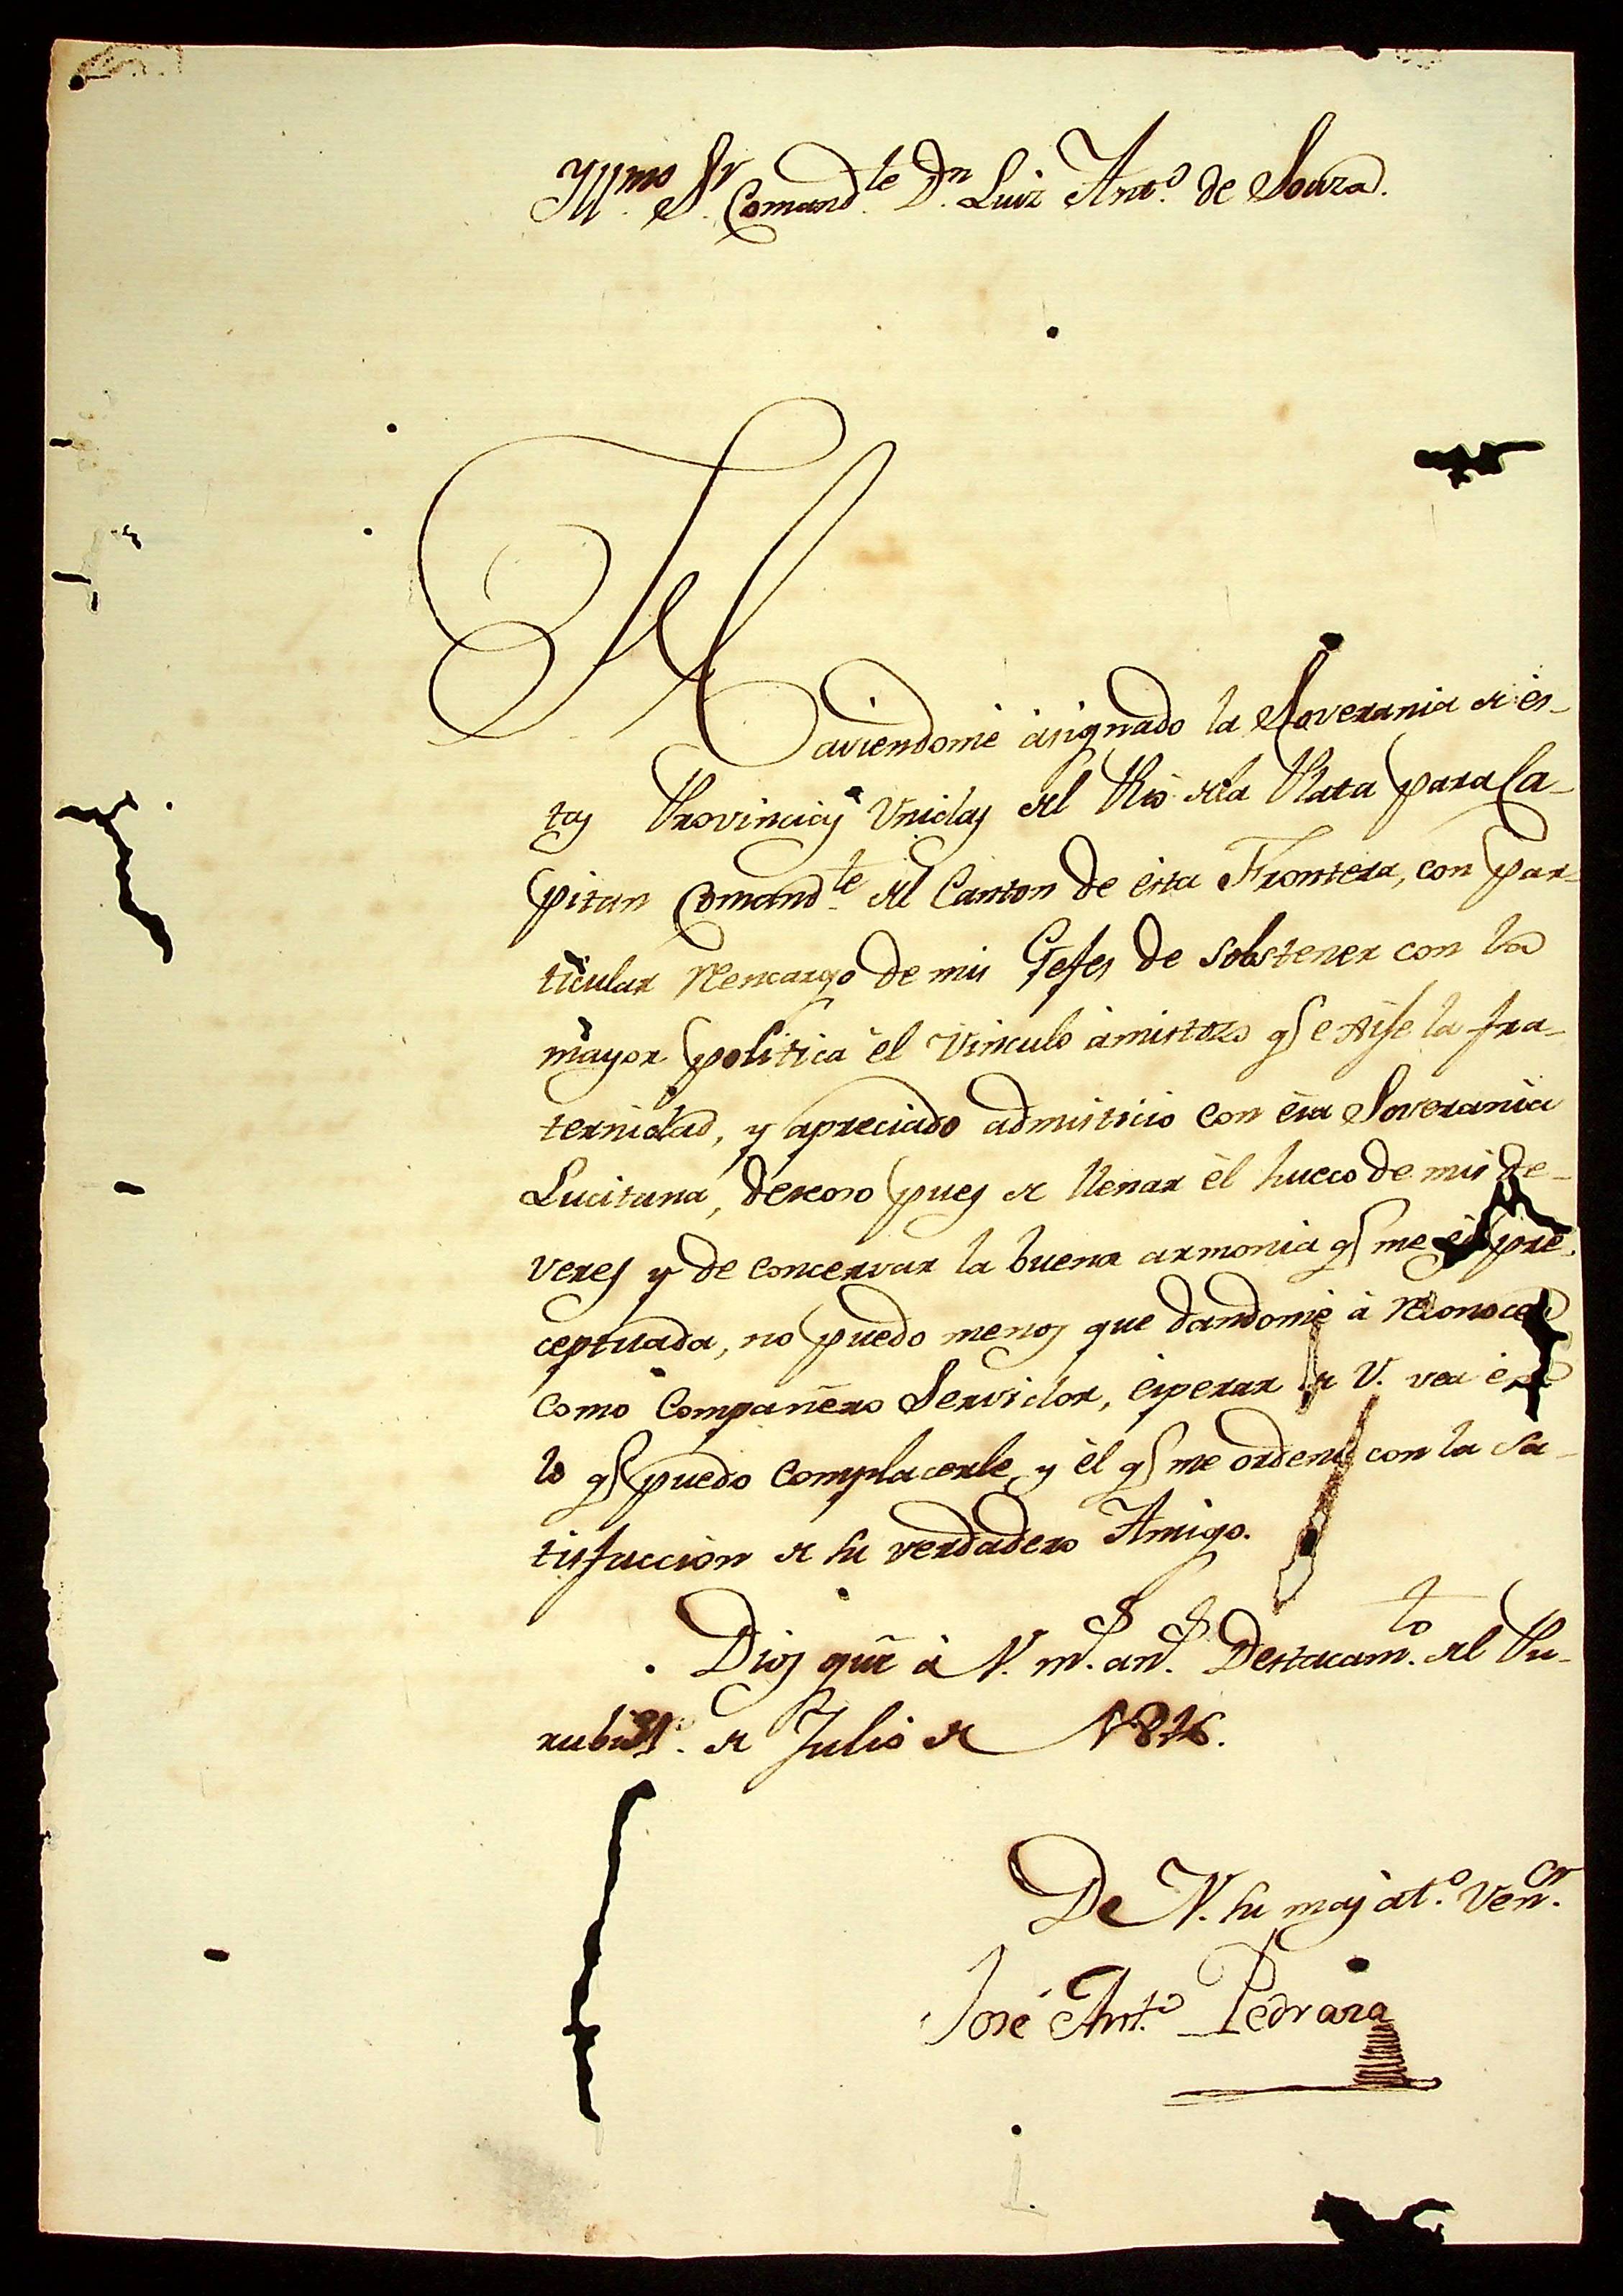 Yll.mo Sr. Comand.te Dn. Luiz Ant.o de Souza.
Haviendome asignado la Soverania de es-
tas Provincias Unidas del Rio dela Plata para Ca-
pitan Comand.te del Canton de esta Frontera, con par-
ticular Rencargo de mis Gefes de sobstener con la
mayor politica el Vinculo amistozo q.e la fra-
ternidad, y apreciado admisticio con esa Soverania
Lucitana, deseoso pues de llenar el hueco de mis de-
veres y de concervar la buena armonia q.e me es pre-
ceptuada, no puedo menos que dandome à Reconocer
como Compañero Servidor, esperar de V. vea en
lo q.e puedo complacerle, y el q.e me ordene con la sa-
tisfaccion de su verdadero Amigo.
Dios gue à V. m.s an.s Destacam.to del
de Julio de
De V. su mas at.o Ven.or
José Ant.o Pedraza